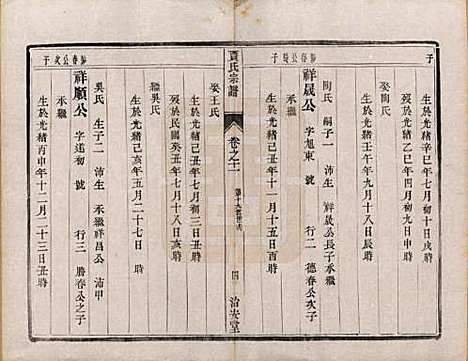 子
生於光緒辛巳年七月初十日戌時
歿於光緒乙巳年九月初四日辰時
娶陶氏
生於光緒壬午年九月十八日辰時
陶氏 嗣子一 沛生 祥晟公長子承繼
祥晟公 字旭東 號 行二 德春公次子
承繼
勝春公長子
生於光緒己丑年十二月十五日酉時
賈氏宗譜
卷之二
四 治安堂
生於光緒癸巳年七月初三日丑時
歿於民國癸丑年七月十八日亥時
娶王氏
生於光緒己亥年五月二十七日 時
繼吳氏
吳氏 生子二 沛生 承繼祥昌公 沛甲
祥顧公 字述初 號 行三 勝春公之子
承繼
勝春公次子
生於光緒丙申年十二月二十三日亥時